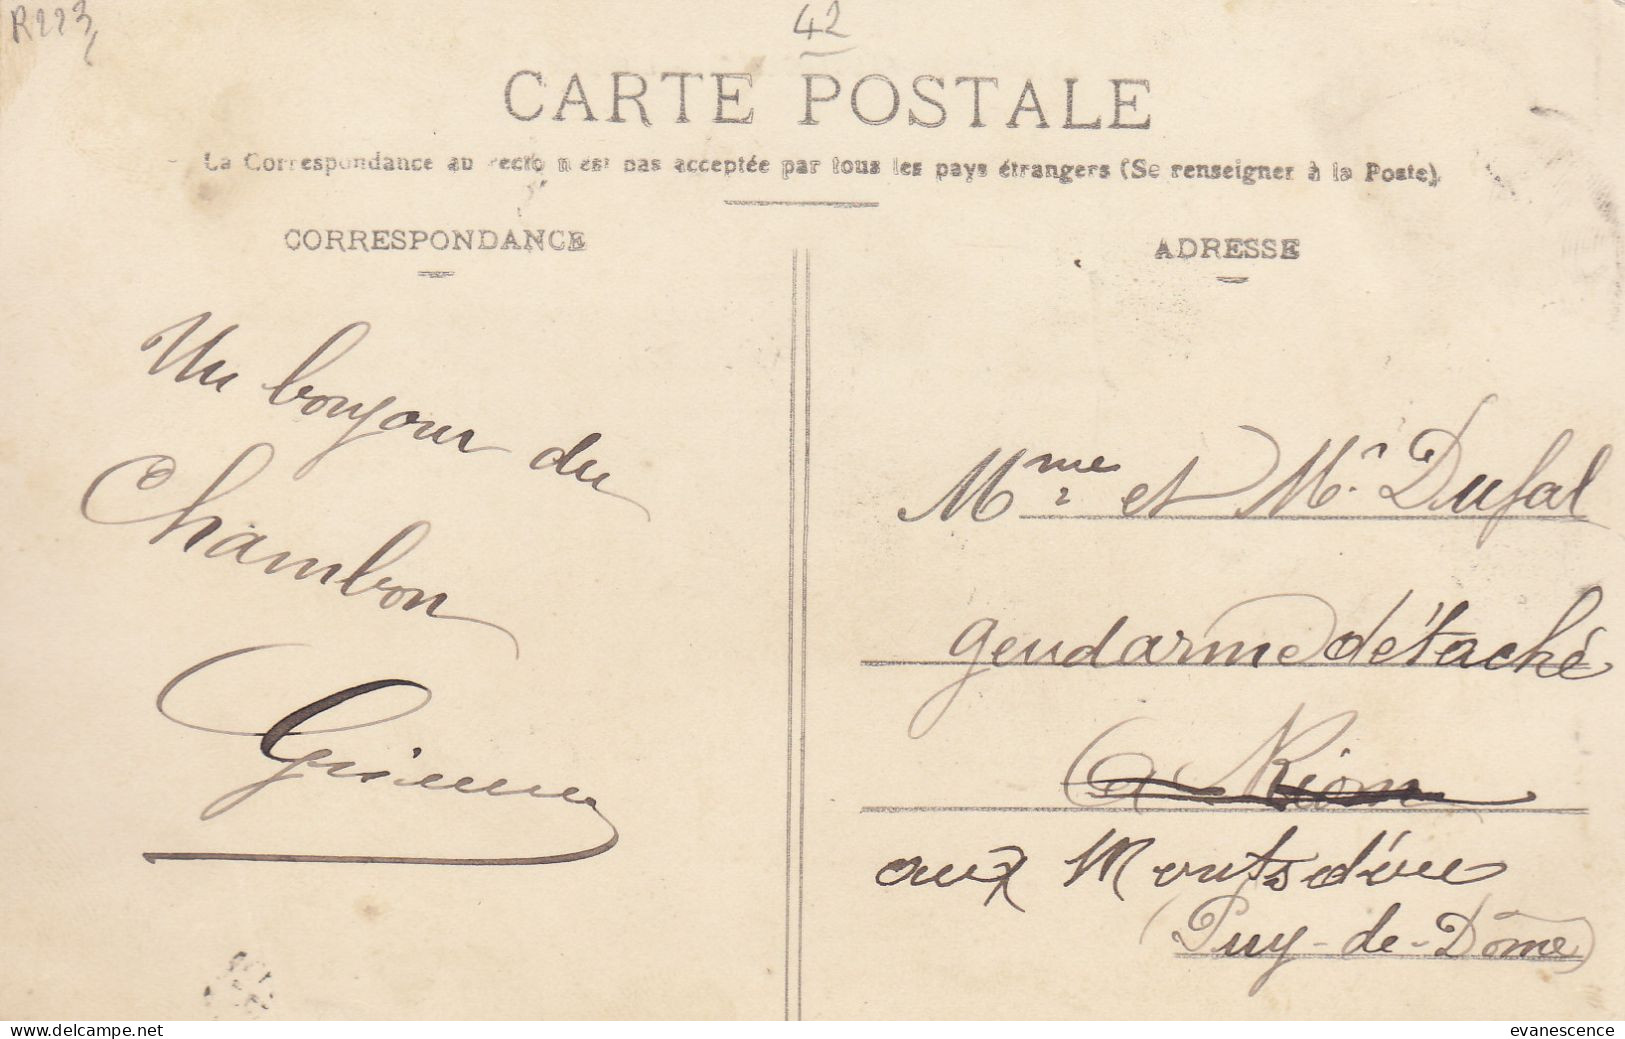 R223
42
CARTE POSTALE
La Correspondance au recto n'est pas acceptée par tous les pays étrangers (Se renseigner à la Poste)
CORRESPONDANCE
ADRESSE
Un bonjour du
Chambon
Mme et Mr Dufal
gendarme détaché
a Riom
aux
Puy-de-Dôme
www.delcampe.net
evanescence